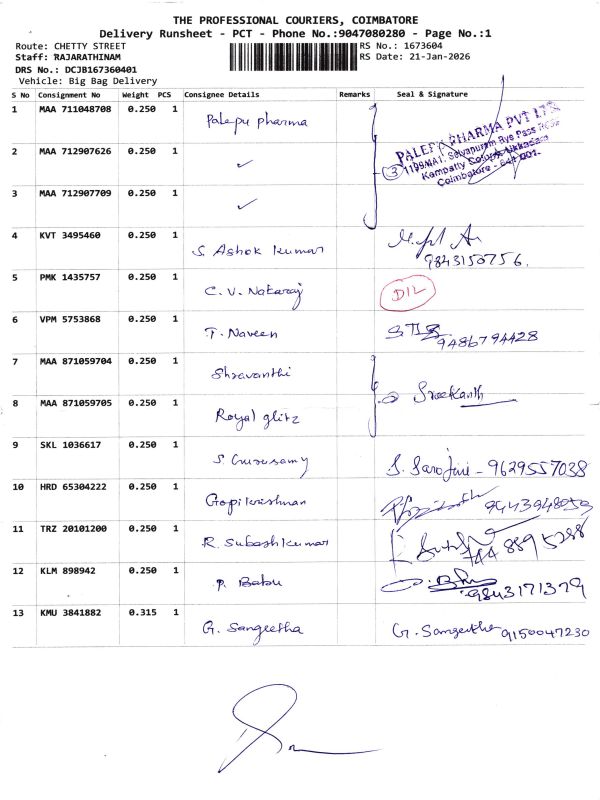 THE PROFESSIONAL COURIERS, COIMBATORE
Delivery Runsheet - PCT - Phone No.:9047080280 - Page No.:1
Route: CHETTY STREET
Staff: RAJARATHINAM
DRS No.: DCJB167360401
Vehicle: Big Bag Delivery
RS No.: 1673604
RS Date: 21-Jan-2026
S No Consignment No Weight PCS Consignee Details Remarks Seal & Signature
1 MAA 711048708 0.250 1 Palepu pharma
PALEPU PHARMA PVT LTD
Selvapuram Bye Pass Road
Kempatty Colony
Coimbatore - 641 001.
3
2 MAA 712907626 0.250 1 ✓
3 MAA 712907709 0.250 1 ✓
4 KVT 3495460 0.250 1 S. Ashok kumar
9843150756.
5 PMK 1435757 0.250 1 C. V. Nataraj DIL
6 VPM 5753868 0.250 1 T. Naveen 9486794428
7 MAA 871059704 0.250 1 Shravanthi
Sreekanth
8 MAA 871059705 0.250 1 Royal glitz
9 SKL 1036617 0.250 1 S. Gurusamy S. Sarojini - 9629557038
10 HRD 65304222 0.250 1 Gopikrishnan
11 TRZ 20101200 0.250 1 R. Subash kumar
12 KLM 898942 0.250 1 P. Babu 9843171379
13 KMU 3841882 0.315 1 G. Sangeetha G. Sangeetha 9150047230